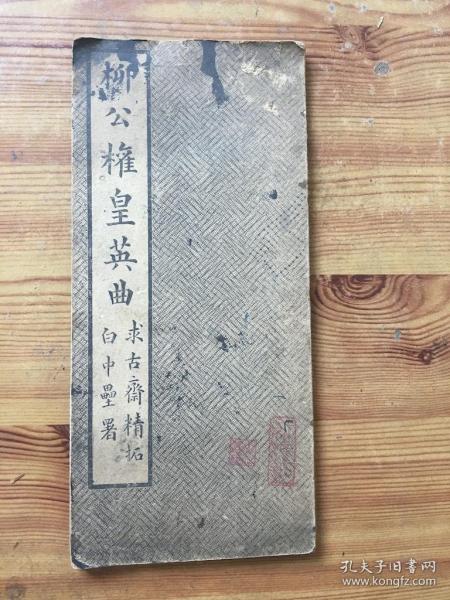 柳公權皇英曲
求古齋精拓
白中壘署
孔夫子旧书网
www.kongfz.com